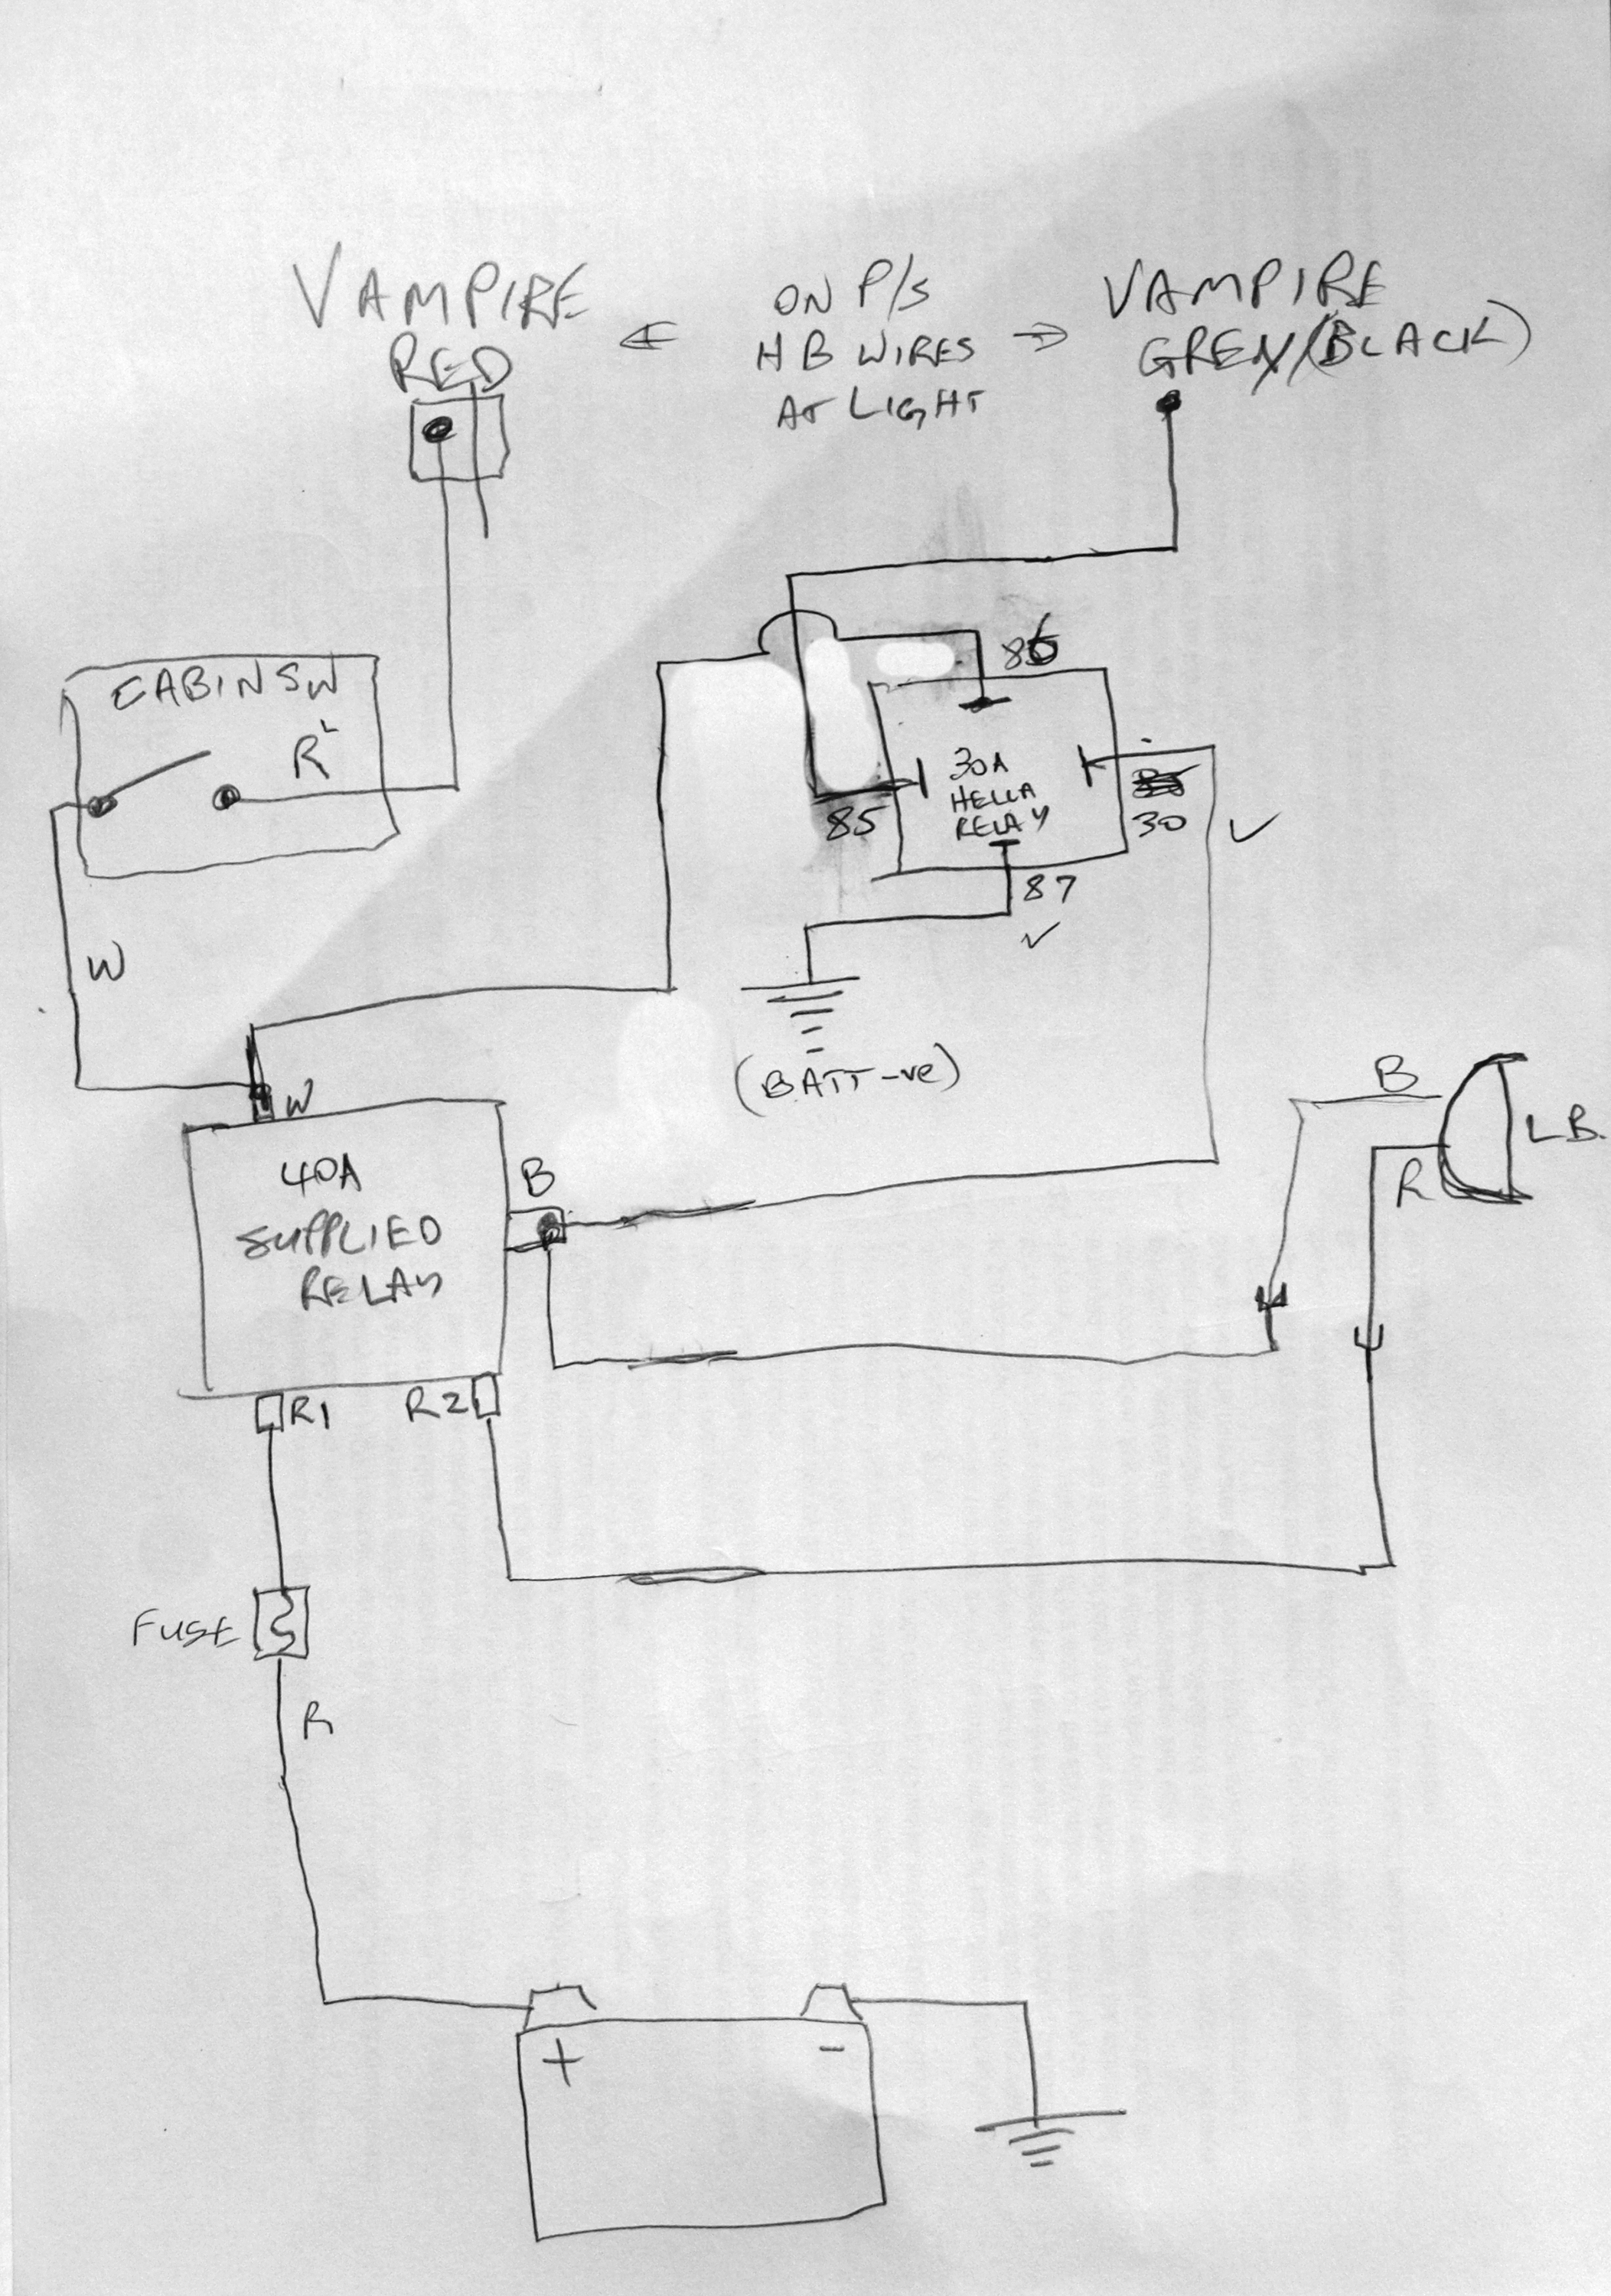 VAMPIRE
RED
ON P/S
HB WIRES
AT LIGHT
VAMPIRE
GREN/(BLACK)
CABIN SW
R
86
30A
HELLA
RELAY
85
30
87
W
(BATT-ve)
W
B
L.B.
R
40A
SUPPLIED
RELAY
B
R1
R2
FUSE
R
+
-